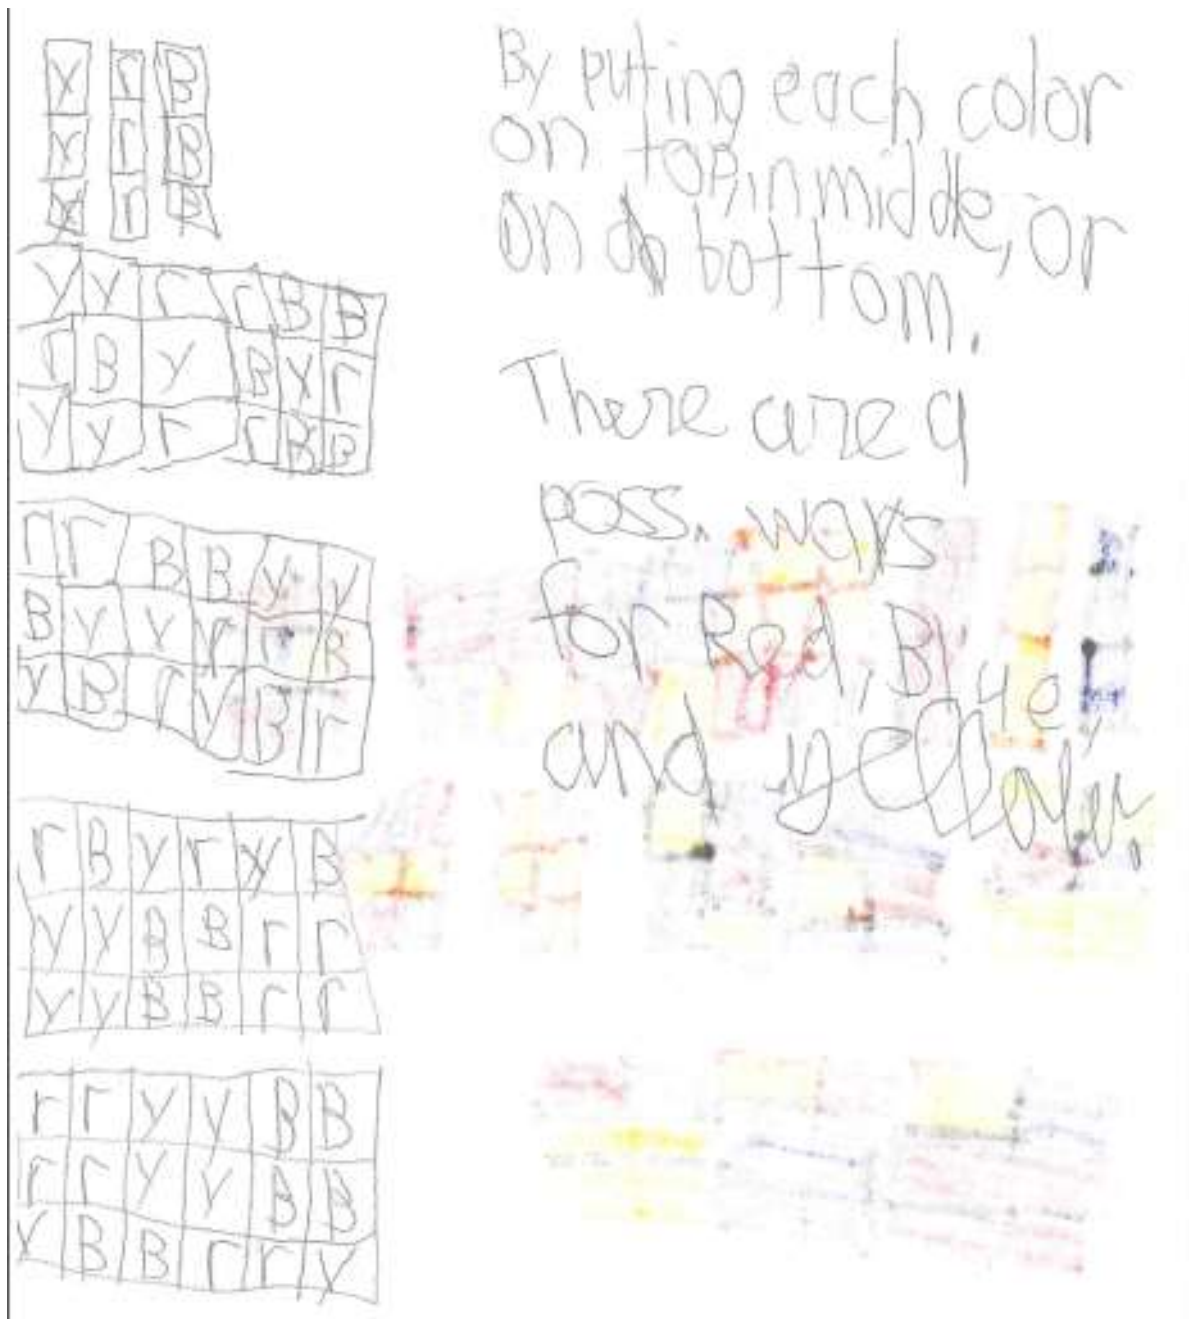 y r B
y r B
y r B
y y r r B B
r B y B y r
y y r r B B
r r B B y y
B y y r r B
y B r y B r
r B y r y B
y y B B r r
y y B B r r
r r y y B B
r r y y B B
y B B r r y
By puting each color
on top, in middle, or
on bottom.
There are 9
poss. ways
for Red, Blue,
and yellow.